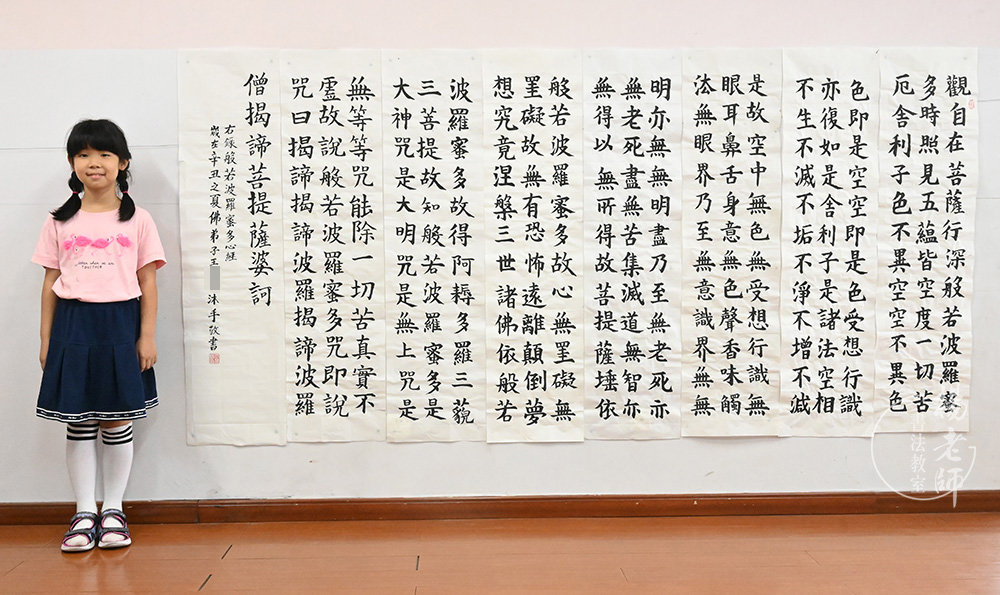 觀自在菩薩行深般若波羅蜜
多時照見五蘊皆空度一切苦
厄舍利子色不異空空不異色
色即是空空即是色受想行識
亦復如是舍利子是諸法空相
不生不滅不垢不淨不增不減
是故空中無色無受想行識無
眼耳鼻舌身意無色聲香味觸
法無眼界乃至無意識界無無
明亦無無明盡乃至無老死亦
無老死盡無苦集滅道無智亦
無得以無所得故菩提薩埵依
般若波羅蜜多故心無罣礙無
罣礙故無有恐怖遠離顛倒夢
想究竟涅槃三世諸佛依般若
波羅蜜多故得阿耨多羅三藐
三菩提故知般若波羅蜜多是
大神咒是大明咒是無上咒是
無等等咒能除一切苦真實不
虛故說般若波羅蜜多咒即說
咒曰揭諦揭諦波羅揭諦波羅
僧揭諦菩提薩婆訶
右錄般若波羅蜜多心經
歲在辛丑之夏佛弟子王 沐手敬書
老師
書法教室